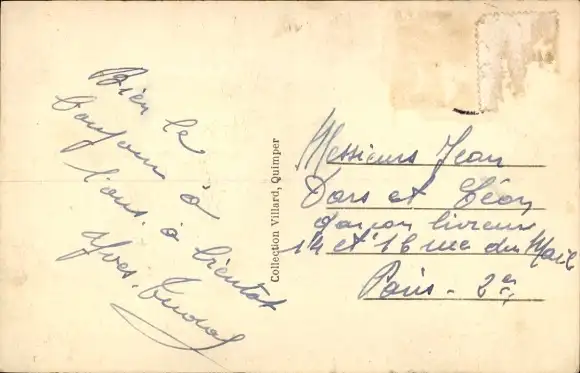 Bien le
bonjour à
tous, à bientôt
Yves.
Collection Villard, Quimper
Messieurs Jean
Dars et Léon
garçon livreur
14 et 16 rue du Mail
Paris - 2e